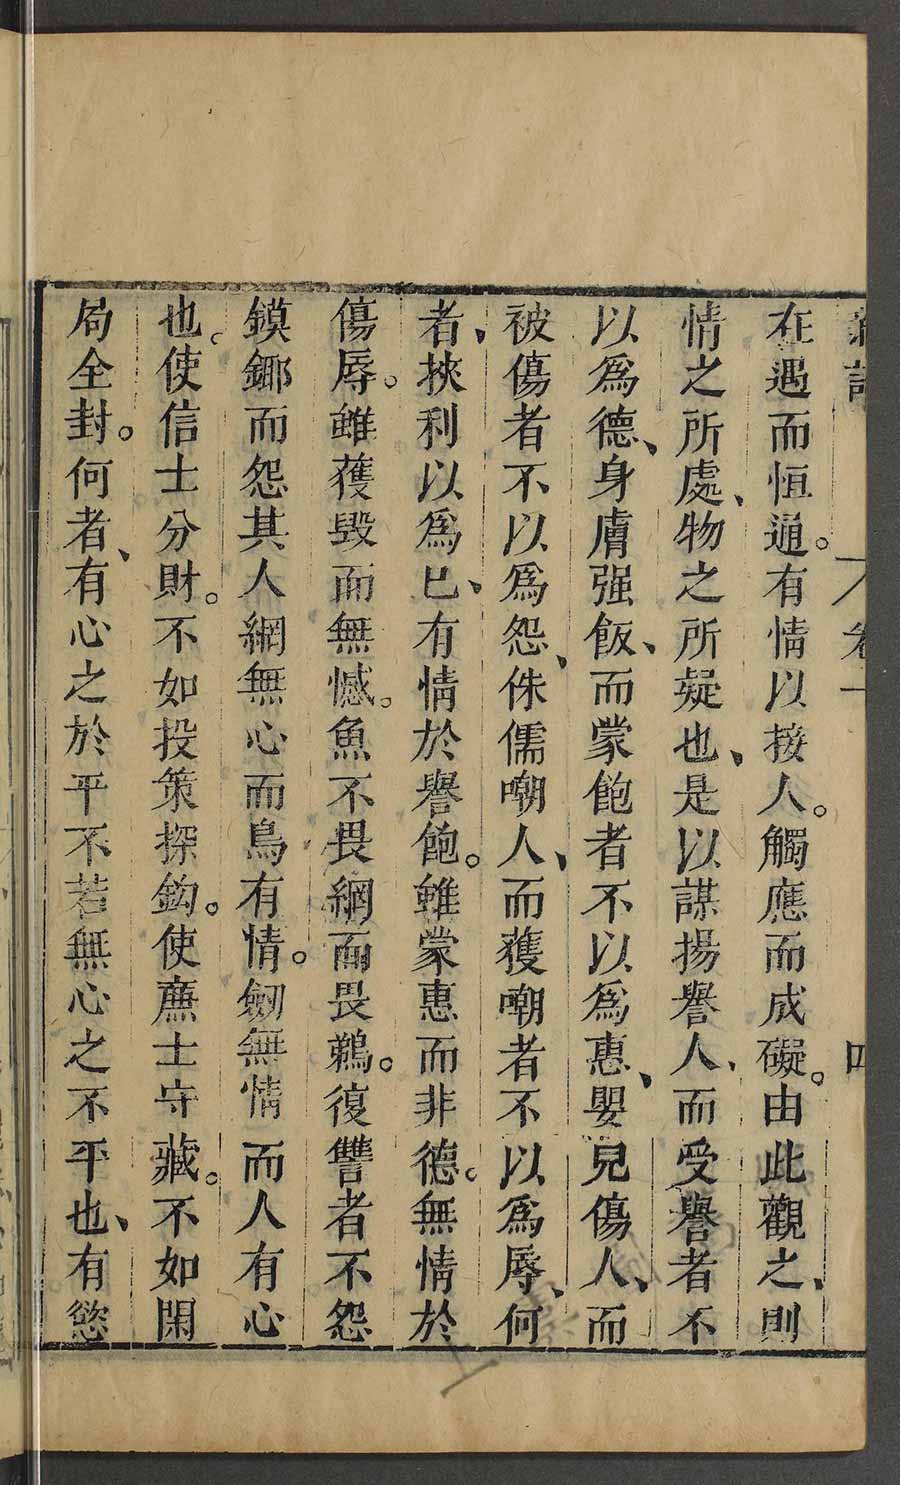 卷一 四
在遇而恒通。有情以接人。觸應而成礙。由此觀之、則
情之所處、物之所疑也、是以謀揚譽人、而受譽者不
以爲德、身膚强飯、而蒙飽者不以爲惠、嬰兒傷人、而
被傷者不以爲怨、侏儒嘲人、而獲嘲者不以爲辱、何
者、挾利以爲己、有情於譽飽。雖蒙惠而非德。無情於
傷辱。雖獲毀而無憾。魚不畏網而畏鵜。復讐者不怨
鏌鎁而怨其人網無心而鳥有情。劒無情而人有心
也。使信士分財。不如投策探鈎。使廉士守藏。不如閉
局全封。何者、有心之於平不若無心之不平也、有慾